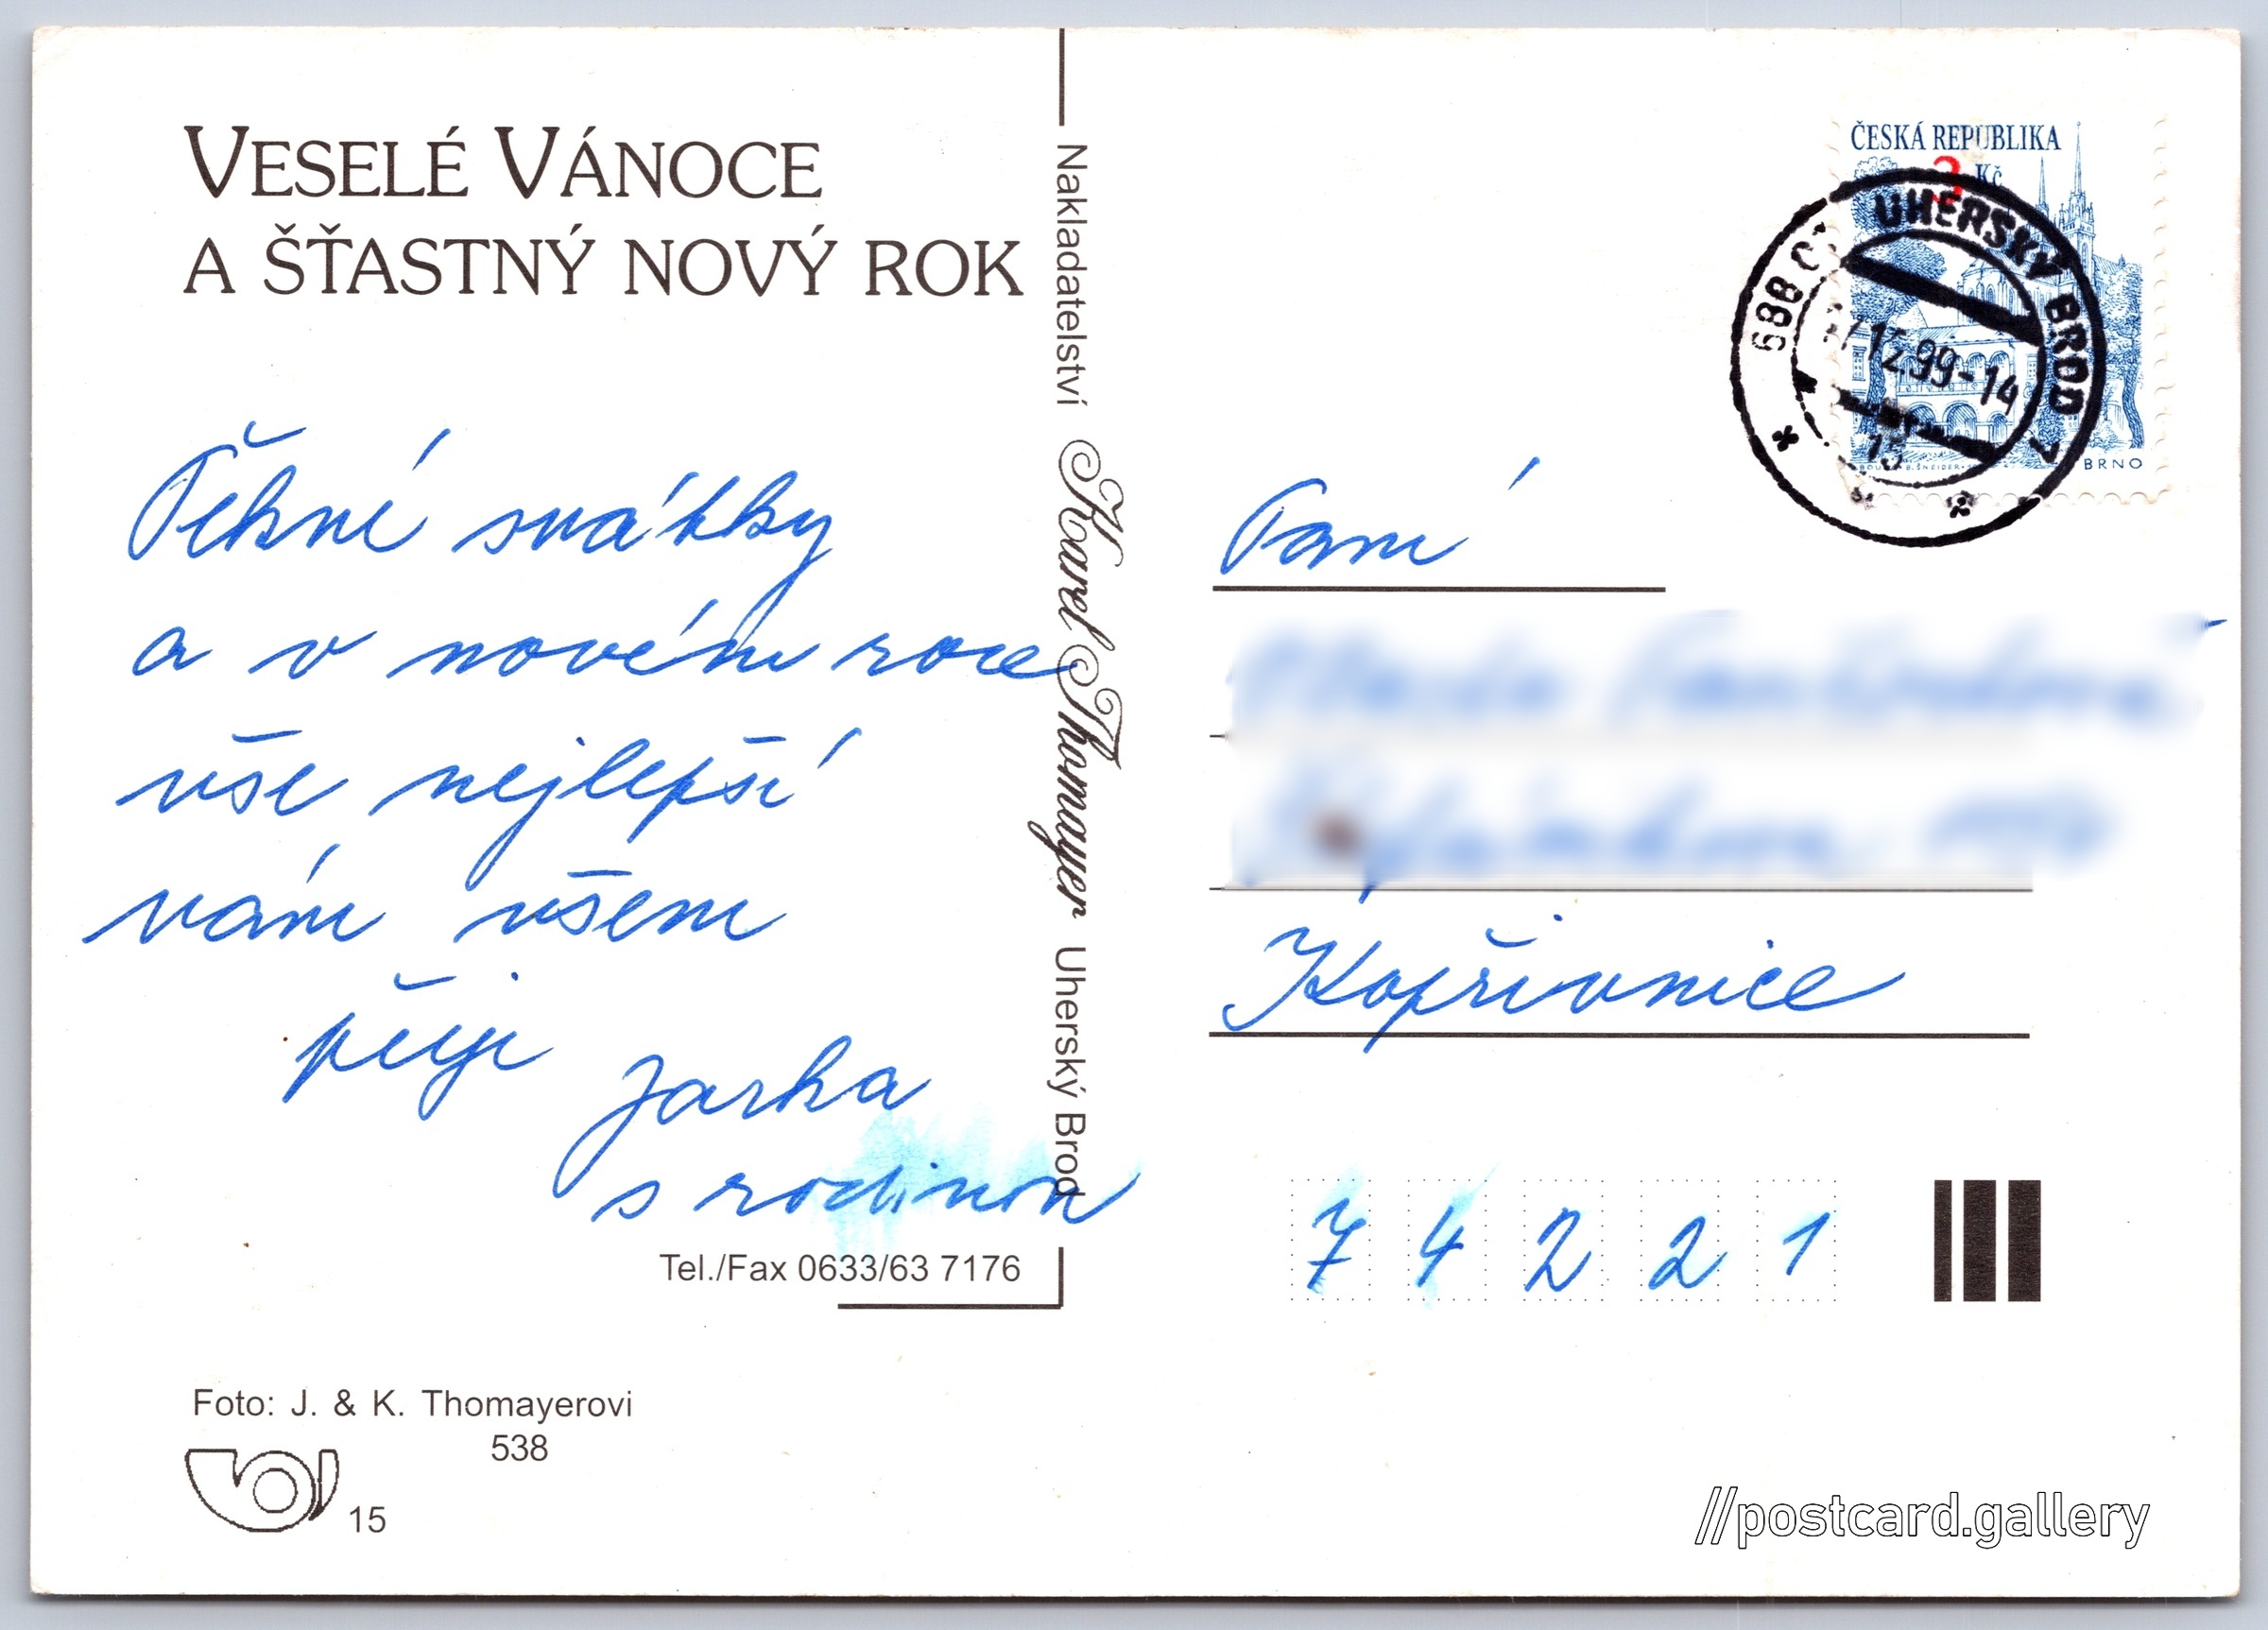 VESELÉ VÁNOCE
A ŠŤASTNÝ NOVÝ ROK
Pěkné svátky
a v novém roce
vše nejlepší
vám všem
přeji
Jarka
s rodinou
Tel./Fax 0633/63 7176
Foto: J. & K. Thomayerovi
538
15
Nakladatelství Karel Thomayer Uherský Brod
ČESKÁ REPUBLIKA
3 Kč
BRNO
UHERSKÝ BROD 7
688 0
12.99-14
15
Paní
Kopřivnice
74221
//postcard.gallery